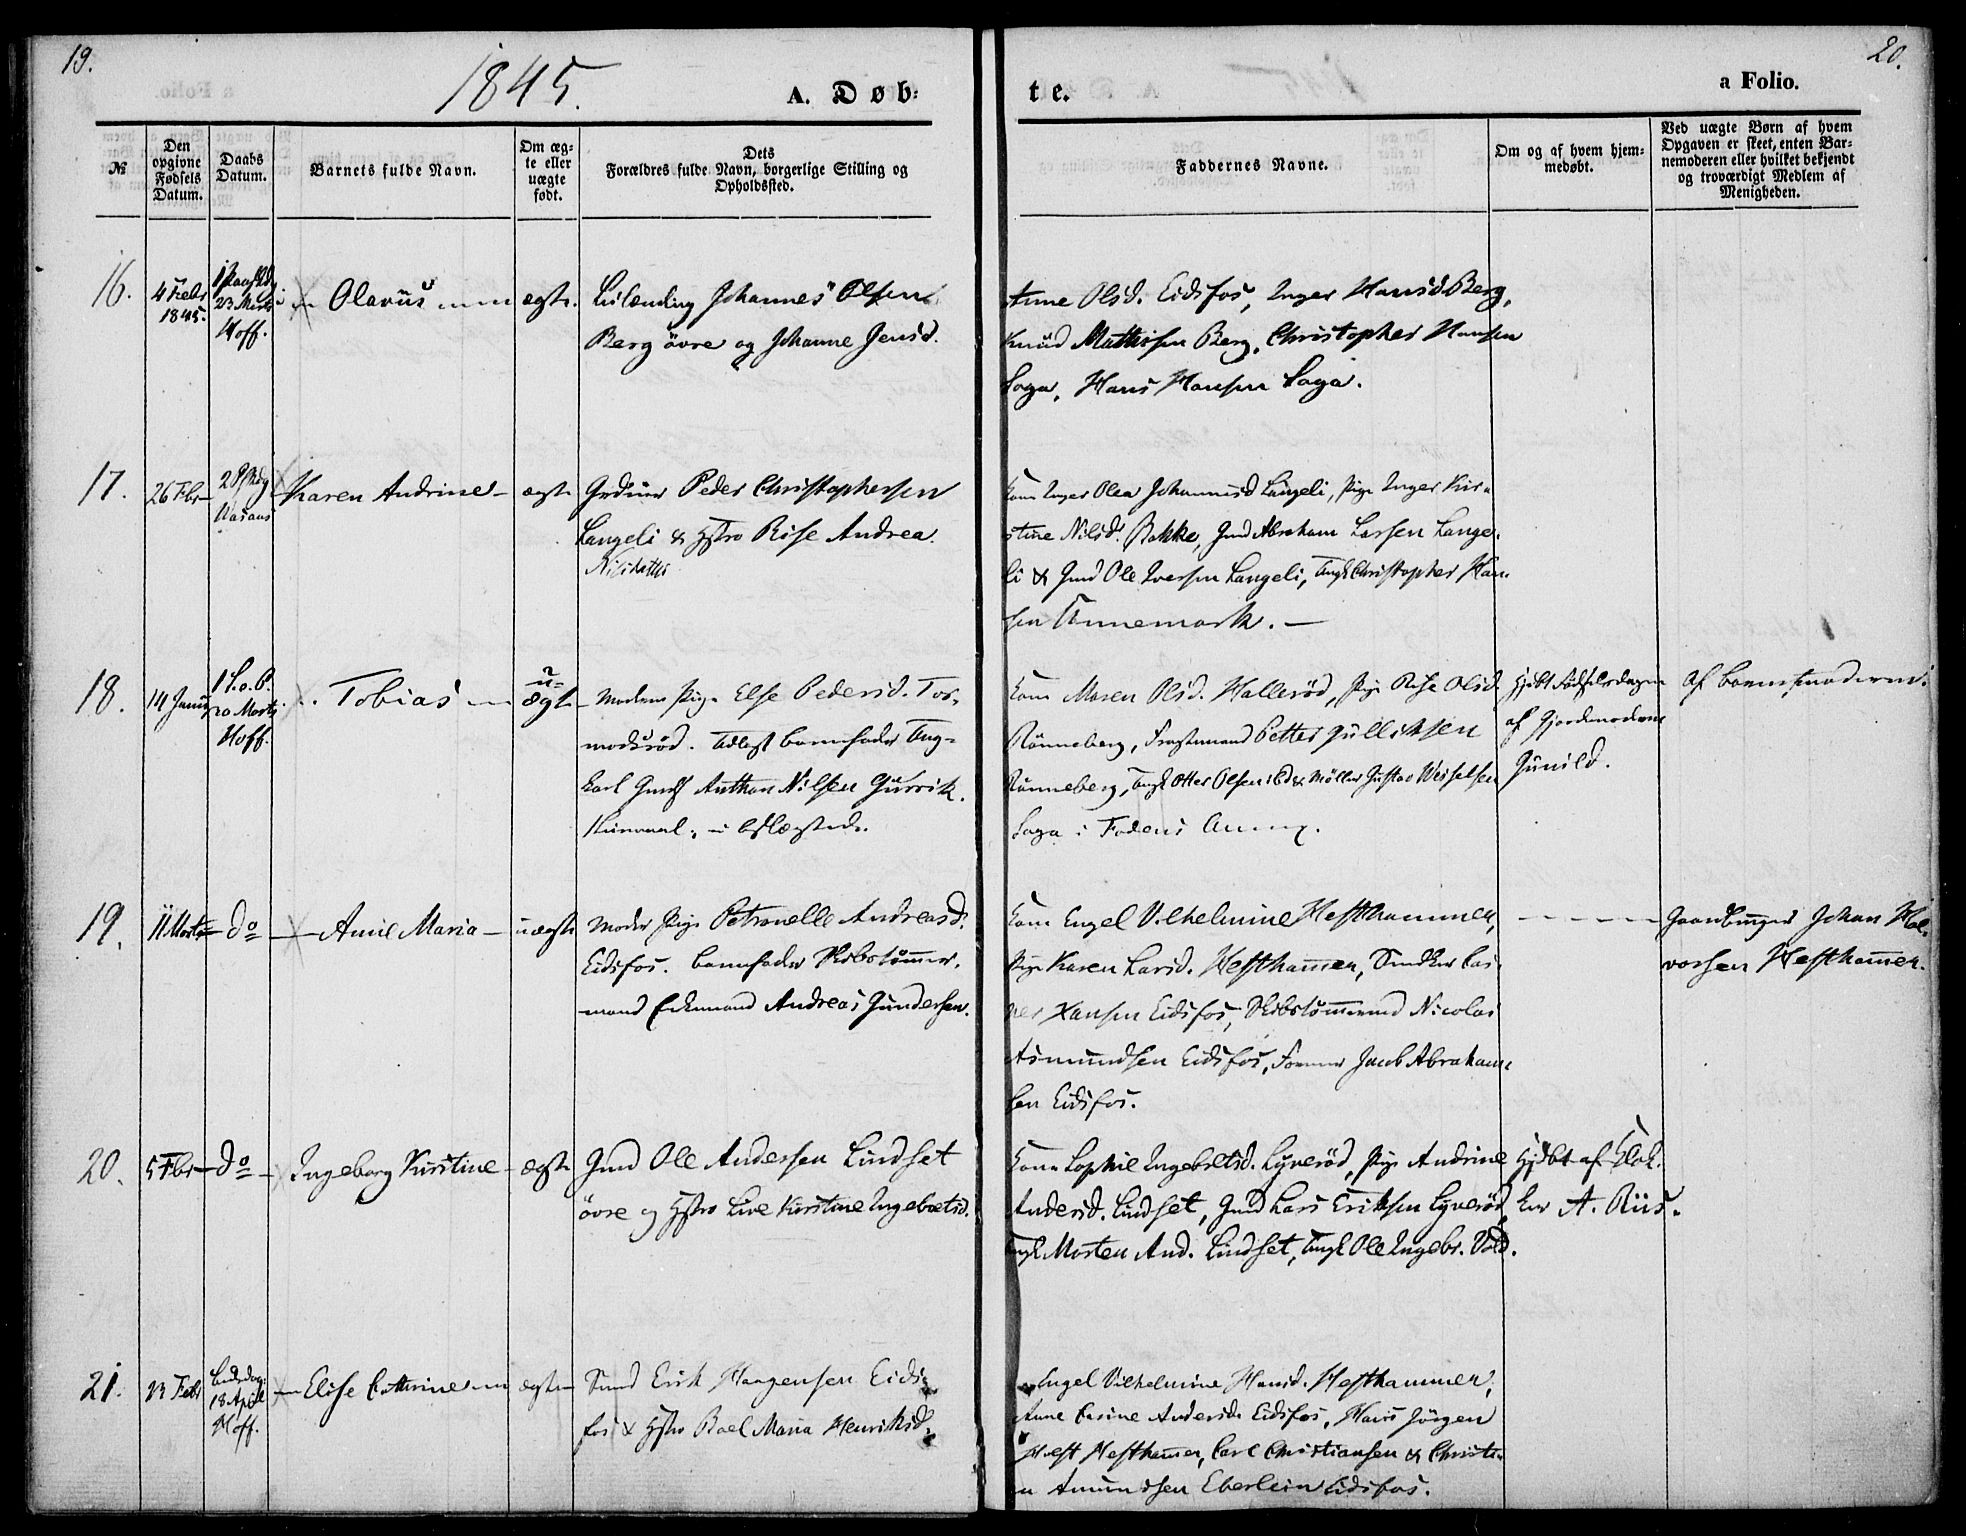 19.
1845.
A. Døb-
te.
a Folio.
20.
№
Den opgivne Fødsels Datum.
Daabs Datum.
Barnets fulde Navn.
Om ægte eller uægte født.
Dets Forældres fulde Navn, borgerlige Stilling og Opholdssted.
Faddernes Navne.
Om og af hvem hjemmedøbt.
Ved uægte Børn af hvem Opgaven er skeet, enten Barnemoderen eller hvilket bekjendt og troværdigt Medlem af Menigheden.
16.
4 Febr
1845.
23 Marts
Hoff.
Olavus
ægte.
Johannes Olsen
Berg øvre og Johanne Jensd.
Anne Olsd. Eidsfos, Inger Hansd. Berg,
Knud Mathisen Berg, Christopher Hansen
Soga, Hans Hansen Soga.
17.
26 Fbr
Vasaas
Karen Andrine
ægte
Peder Christophersen
Langeli & Hstro Rise Andrea
Nilsdatter
Kone Inger Olea Johannesd Langeli, Pige Inger Kir-
stine Nilsd. Bakke, Gmd Abraham Larsen Lange-
li & Gmd Ole Iversen Langeli, Ungk Christopher Han-
sen Annemark.
18.
14 Januar
Marts
Hoff.
Tobias
u-
ægte
Moderen Pige Else Pedersd. Tor-
modsrød. Udlagt Barnefader Ung-
karl Anthon Nilsen
Kone Maren Olsd. Hallerød, Pige Rise Olsd
Rønneberg, Petter Gulliksen
Rønneberg, Ungk Otter Olsen ibd & Møller Gustav
Soga i
Hjdbt Fødselsdagen
af Gjordemoderen
Gunild.
Af Barnemoderen.
19.
11 Marts
do
Anne Maria
uægte
Moder Pige Petronelle Andreasd.
Eidsfos. Barnefader Skibstømmer-
mand Enkemand Andreas Gundersen.
Kone Engel Vilhelmine Hefthammer,
Pige Karen Larsd. Hefthammer, Snedker
Hansen Eidsfos, Skibstømmermd Nicolai
Asmundsen Eidsfos, Former Jacob Abraham-
sen Eidsfos.
Gaardbruger Johan Hal-
vorsen Hefthammer.
20.
5 Fbr
do
Ingeborg Kirstine
ægte
Gmd Ole Andersen Lindset
øvre og Hstro Live Kirstine Ingebretsd.
Kone Sophie Ingebretsd. Lyverød, Pige Andrine
Andersd. Lindset, Gmd Lars Eriksen Lyverød
Ungk Morten And. Lindset, Ungk Ole Ingebr. Vold.
Hjdbt af Klok-
ker A. Riis.
21.
Febr
18 April
Hoff.
Elise Cathrine
ægte
Smed Erik Haagensen Eids-
fos & Hstro Boel Maria Henriksd.
Engel Vilhelmine Hansd. Hefthammer,
Anne Andersd. Eidsfos, Hans Jørgen
Hefthammer, Carl Christiansen & Christi-
Amundsen Eberlein Eidsfos.